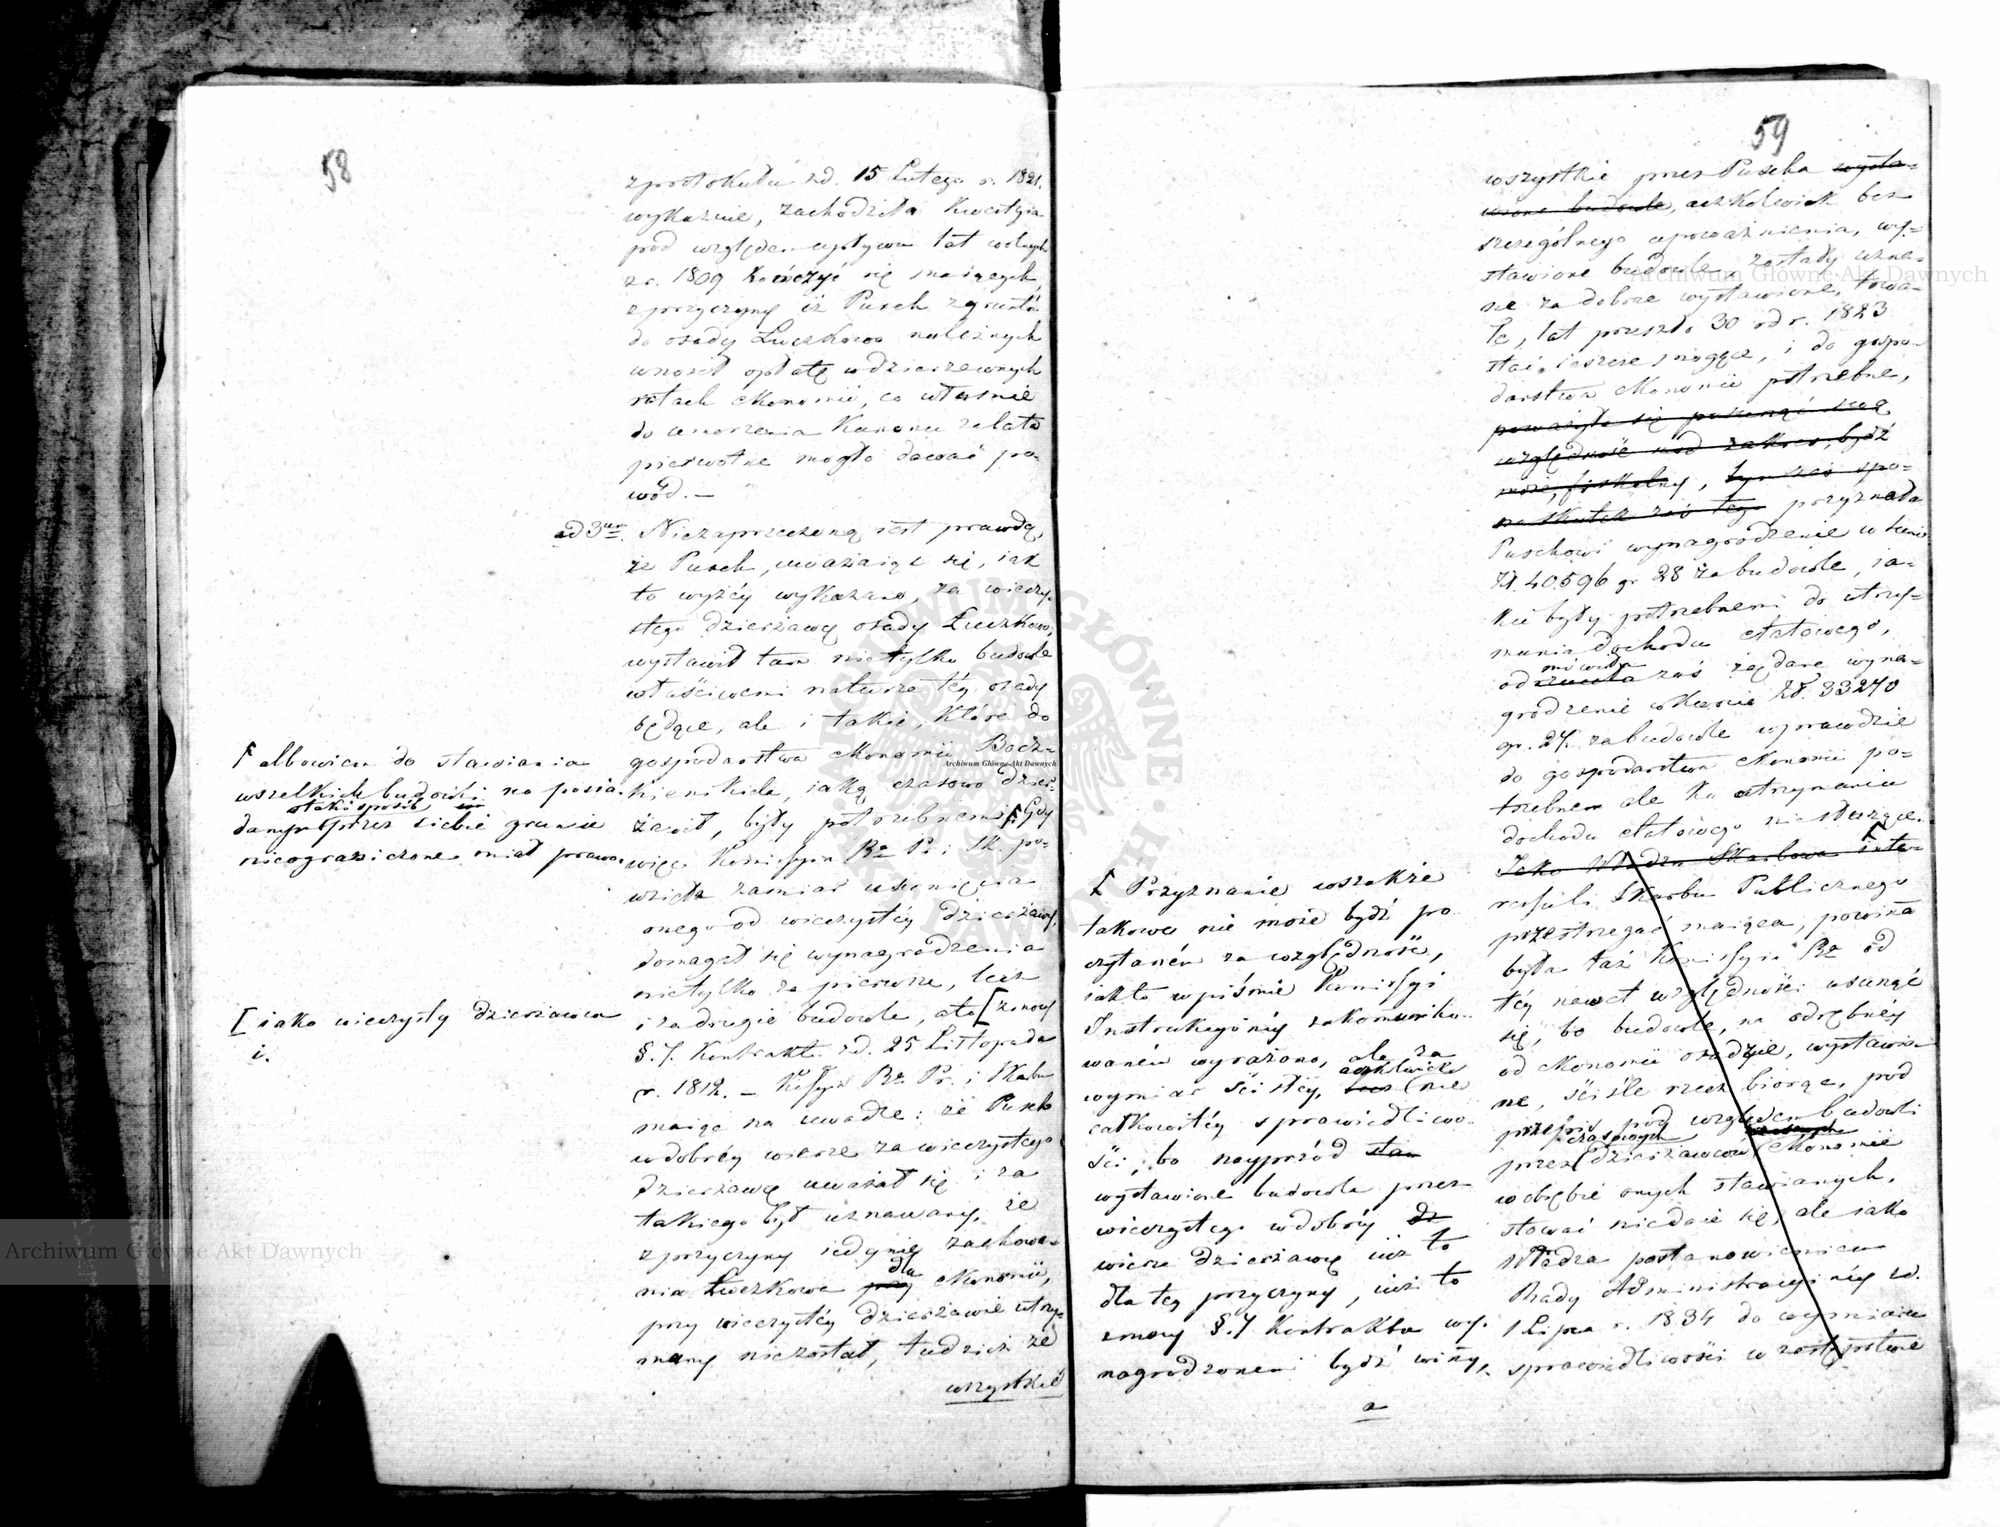 58
z protokułu z d. 15 Lutego r. 1821.
wykaznie, zachodziła kwestyia
pod względem upływu lat wolnych
z r. 1809 kończyć się maiących,
z przyczyny iż Pusch z gruntów
do osady Łuczkowo należnych
wnosił opłatę w dzierżewnych
ratach ekonomii, co własnie
do umorzenia Kanonu za lata
pierwotne mogło dawać po-
wód. —
ad 3um. Niezaprzeczoną iest prawdą,
że Pusch, uważaiąc się, iak
to wyżéy wykazano, za wieczy-
stego dzierżawcę osady Łuczkowo,
wystawił tam nietylko budowle
właściwemi naturze téy osady
będące, ale i takie, które do
gospodarstwa ekonomii
iaką czasowo dzier-
żawił, były potrzebnemi [ Gdy
więc Kommissyia Rz. Pr. i Sk. po-
wzięła zamiar usunięcia
onego od wieczystéy dzierżawy,
domagał się wynagrodzenia
nietylko za pierwsze, lecz
i za drugie budowle, a to [ z mocy
§. 7. Kontraktu z d. 25 Listopada
r. 1812. — Kossyia Rz. Pr. i Skarbu
maiąc na uwadze: że Pusch
w dobréy wierze za wieczystego
dzierżawcę uważał się i za
takiego był uznawany, że
z przyczyny iedynie zachowa-
nia Łuczkowa przy dla ekonomii,
przy wieczystéy dzierżawie utrzy-
many niezostał, tudzież że
wszystkie
[ albowiem do stawiania
wszelkich budowli na posia-
danym w takisposób przez siebie gruncie
nieograniczone miał prawo.
[ iako wieczysty dzierżawca
i.
59
wszystkie przez Puscha wysta-
wione budowle, aczkolwiek bez
szczególnego upoważnienia, wy-
stawione budowle, zostały uzna-
ne za dobrze wystawione, trwa-
łe, lat przeszło 30 od r. 1823
stać ieszcze mogące, i do gospo-
darstwa ekonomii potrzebne,
poważyła się posunąć swą
względność nad zakres, bydź
może, fiskalny,
na skutek zaś tego przyznała
Puschowi wynagrodzenie w sumie
Zł. 40596 gr 28 za budowle, ia-
kie były potrzebnemi do utrzy-
mania dochodu etatowego,
odmówiła odrzucała zaś żądane wyna-
grodzenie w kwocie Zł. 33270
gr. 27. za budowle wprawdzie
do gospodarstwa ekonomii po-
trzebne ale ku utrzymaniu
dochodu etatowego niesłużące. [
Iako Władza Skarbowa inte-
ressu Skarbu Publicznego
przestrzegać maiąca, powinna
była taż Komissyia Rz. od
téy nawet względności usunąć
się, bo budowle, na odrębnéy
od ekonomii osadzie, wystawio-
ne, ściśle rzecz biorąc, pod
przepis pod względem budowli
przez czasowych dzierżawców ekonomii
w obrębie onych stawianych,
stować niedaie się, ale iako
Władza postanowieniem
Rady Administracyinéy z d.
1 Lipca r. 1834 do wymiaru
sprawiedliwości w zastępstwie
[ Przyznanie wszakże
takowe nie może bydź po-
czytaném za względność,
iak to w piśmie Komissyi
Instrukcyinéy zakommuniko-
waném wyrażono, ale za
wymiar ścisłéy, lecz aczkolwiek nie
całkowitéy sprawiedliwo-
ści, bo nayprzód
wystawione budowle przez
wieczystego w dobréy
wierze dzierżawcę iuż to
dla téy przyczyny, iuż to
z mocy §. 7 Kontraktu wy-
nagrodzonemi bydź winny,
a
Archiwum Główne Akt Dawnych
Archiwum Główne Akt Dawnych
Archiwum Główne Akt Dawnych